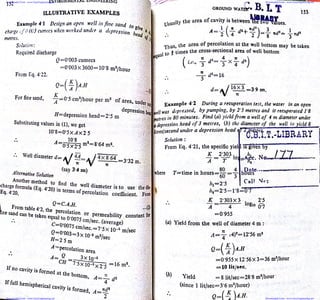 152
ENVIRONMENTAL ENGINEERING
ILLUSTRATIVE EXAMPLES
Example 4·1 Design an open well in fine sand to give a
charge of 0·003 cumecs when worked under a depression head of
metres.
Solution :
Required discharge
Q=0·003 cumecs
=0·003×3600=10·8 m³/hour
From Eq. 4·22.
Q=(K/A) A.H
For fine sand, K/A=0·5 cum/hour per m² of area, under
depression head
H=depression head=2·5 m
Substituting values in (1), we get
10·8=0·5×A×2·5
∴ A= 10·8/0·5×2·5 m²=8·64 m².
∴ Well diameter d=√4A/π=√4×8·64/π=3·32 m.
(say 3·4 m)
Alternative Solution
Another method to find the well diameter is to use the
charge formula (Eq. 4·20) in terms of percolation coefficient. From
Eq. 4·20,
Q=C.A.H
From table 4·2, the percolation or permeability constant for
sand can be taken equal to 0·0075 cm/sec. (average)
C=0·0075 cm/sec.=7·5×10⁻⁵ m/sec
Q=0·003=3×10⁻³ m³/sec
H=2·5 m
A=percolation area
∴ A=Q/CH=3×10⁻³/7·5×10⁻⁵×2·5=16 m².
If no cavity is formed at the bottom, A=π/4 d²
If full hemispherical cavity is formed, A=πd²/2
GROUND WATER
153
C.B.I.T
LIBRARY
Usually the area of cavity is between the two values.
Thus, the area of percolation at the well bottom may be taken
equal to 4/3 times the cross-sectional area of well bottom
d²=16
d=√16×3/π=3·9 m.
Example 4·2 During a recuperation test, the water in an open
well was depressed, by pumping, by 2·5 metres and it recuperated 1·8
metres in 80 minutes. Find (a) yield from a well of 4 m diameter under
a depression head of 3 metres, (b) the diameter of the well to yield 8
litres/second under a depression head
C.B.I.T.-LIBRARY
Solution :
From Eq. 4·21, the specific yield is given by
No. 177
Date
Call No:
where T=time in hours=80/60=4/3 hours
h₁=2·5
h₂=2·5−1·8=0·7
K/A=2·303×3/4 log₁₀ 2·5/0·7
=0·955
(a) Yield from the well of diameter 4 m :
A=π/4 (4)²=12·56 m²
Q=(K/A) A.H
=0·955×12·56×3=36 m³/hour
=10 lit/sec.
(b) Yield =8 lit/sec=28·8 m³/hour
(since 1 lit/sec=3·6 m³/hour)
Q=(K/A) A.H